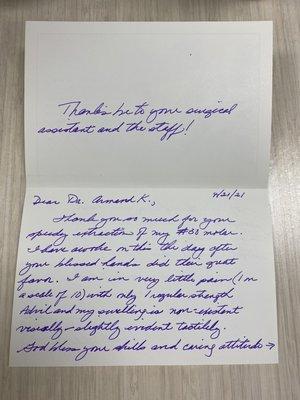 Thanks be to your surgical
assistant and the staff!
Dear Dr. Armand K., 4/21/21
Thank you so much for your
speedy extraction of my #30 molar.
I have awoke on this the day after
your blessed hands did their great
favor. I am in very little pain (1 on
a scale of 10) with only 1 regular strength
Advil and my swelling is non-existent
visually - slightly evident tactilely.
God bless your skills and caring attitude →